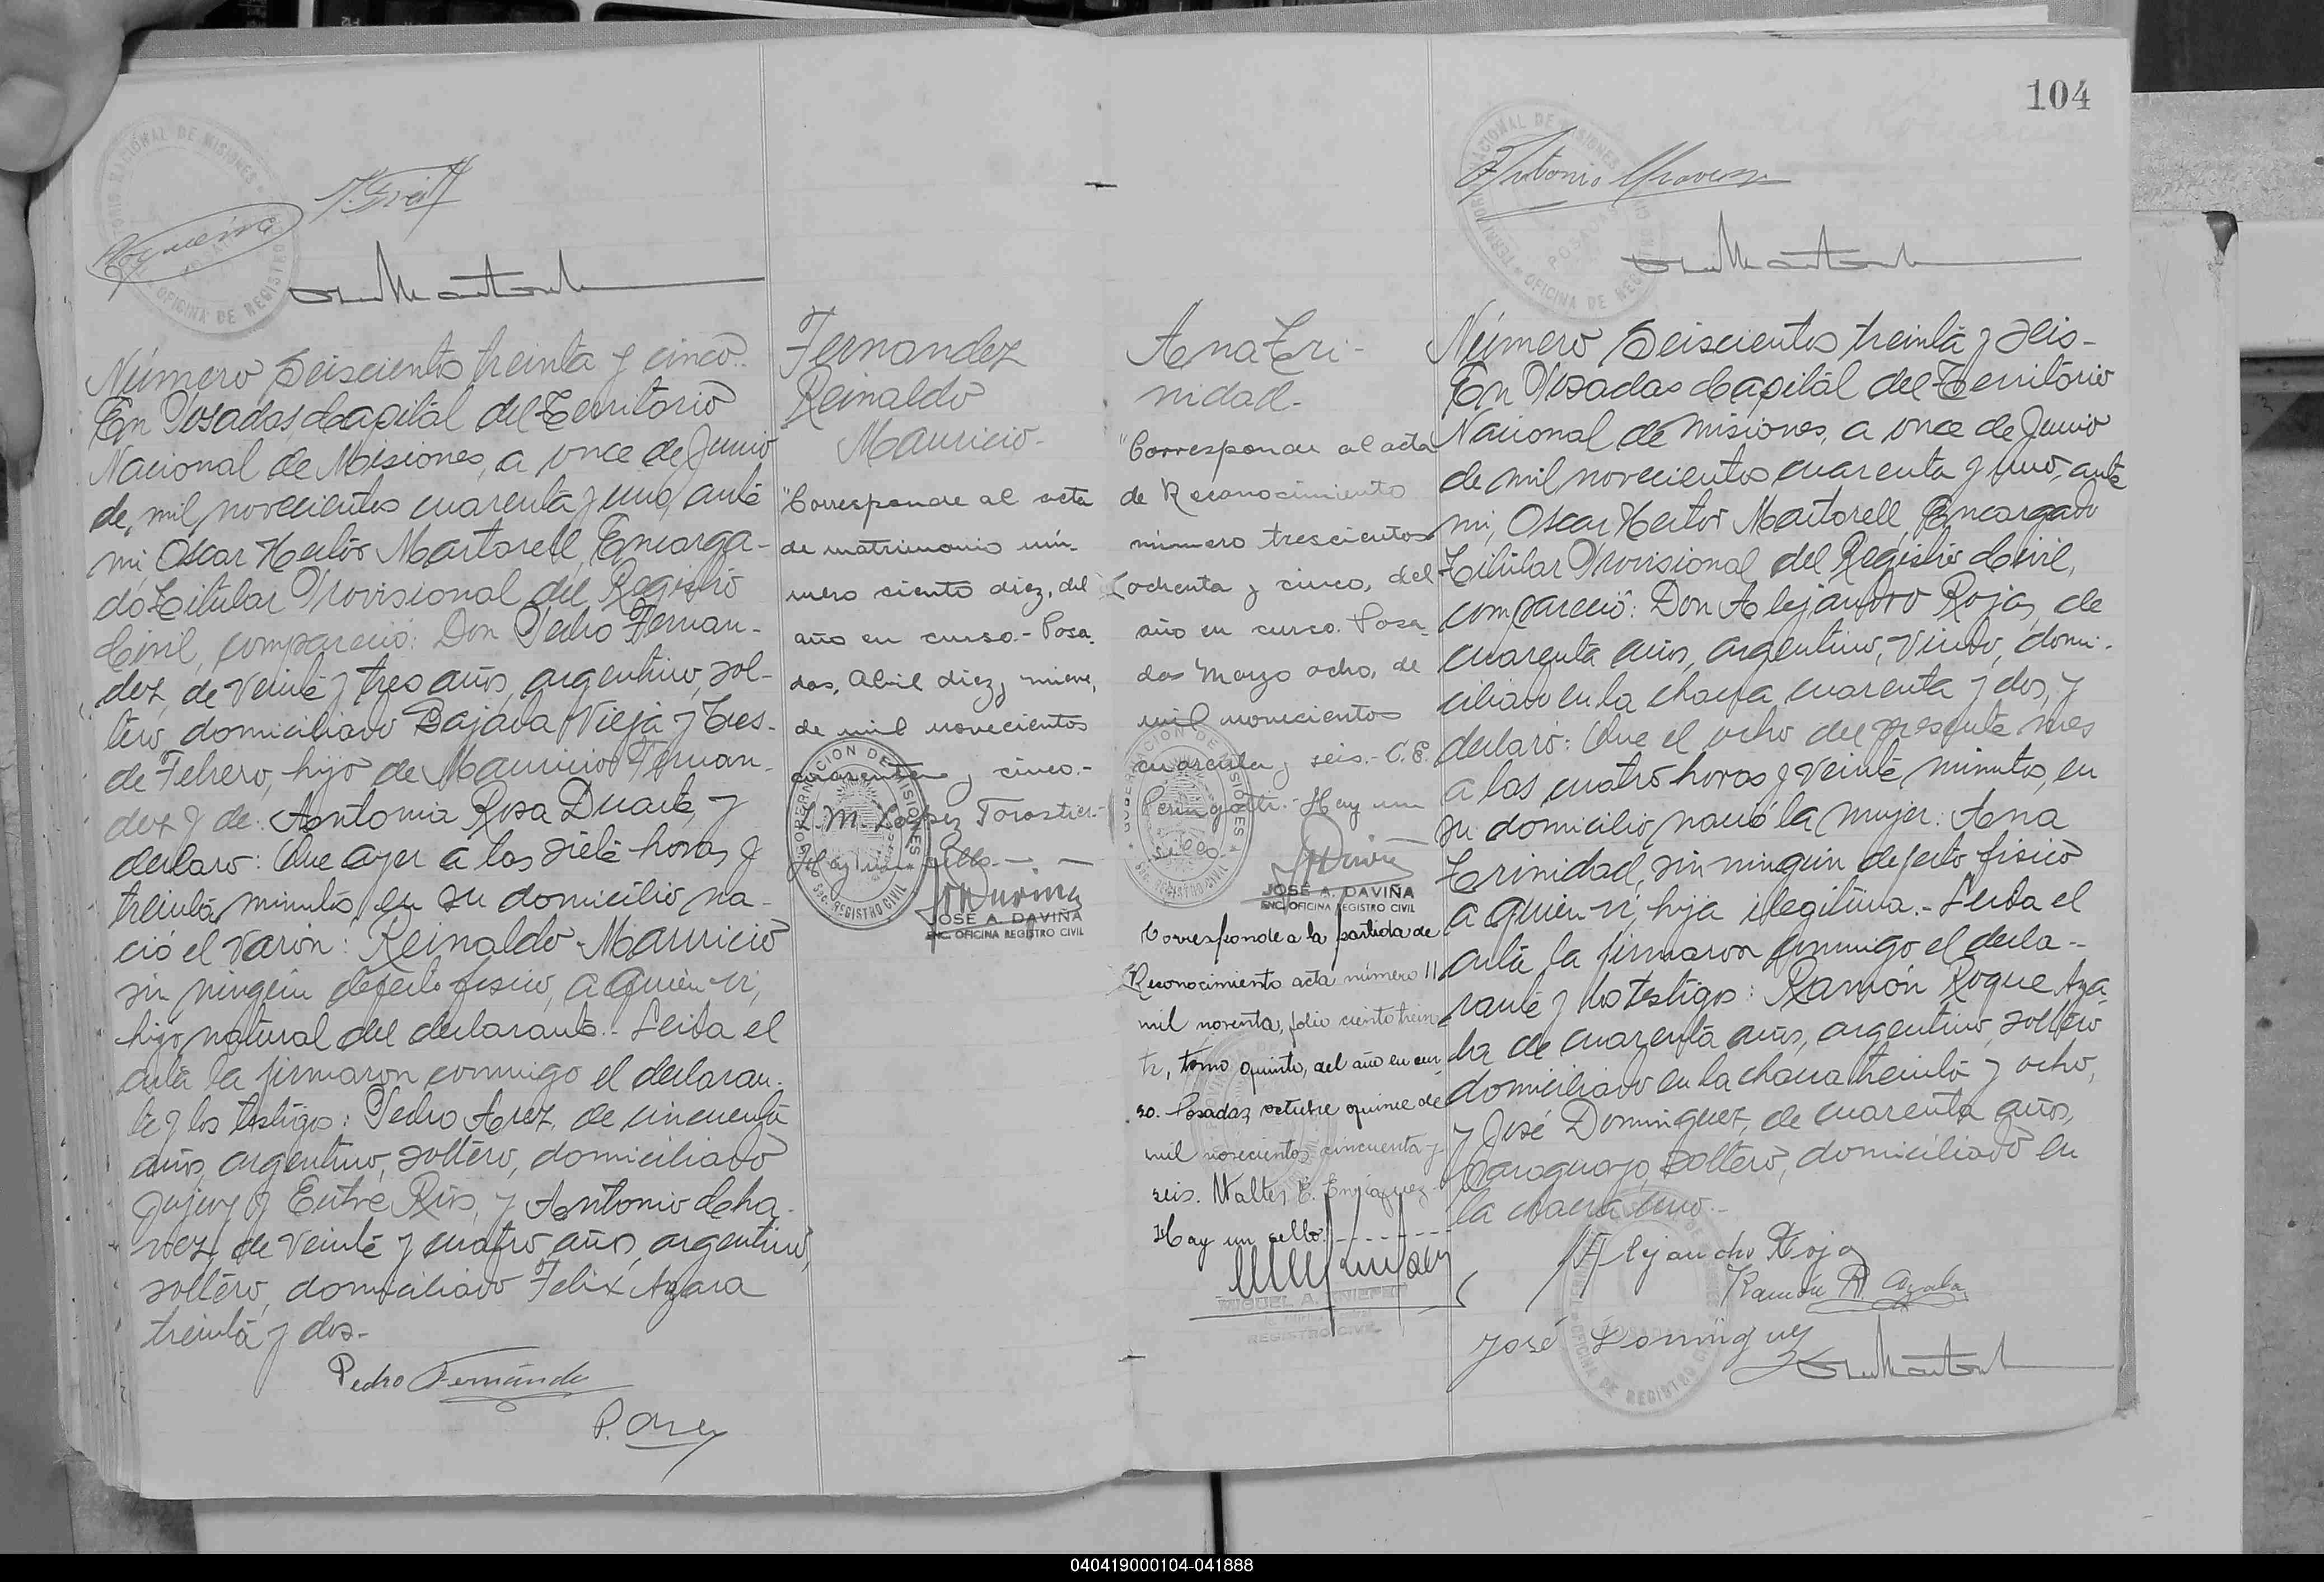 104
Número Seiscientos treinta y cinco.
En Posadas, Capital del Territorio
Nacional de Misiones, a once de Junio
de mil novecientos cuarenta y uno, ante
mi Oscar Hector Martorell, Encarga-
do Titular Provisional del Registro
Civil, compareció: Don Pedro Fernan-
dez, de veinte y tres años, argentino, sol-
tero, domiciliado Bajada Vieja y Tres-
de Febrero, hijo de Mauricio Fernan-
dez y de: Antonia Rosa Duarte, y
declaro: Que ayer a las siete horas y
treinta minutos, en su domicilio na-
ció el varón: Reinaldo Mauricio
sin ningún defecto fisico, a quien vi,
hijo natural del declarante.- Leida el
acta la firmaron conmigo el declaran-
te y los testigos: Pedro Arez, de cincuenta
años, argentino, soltero, domiciliado
Jujuy y Entre Rios, y Antonio Cha-
vez, de veinte y cuatro años, argentino,
soltero, domiciliado Felix Azara
treinta y dos.-
Pedro Fernández
P. Arez
Fernandez
Reinaldo
Mauricio-
"Corresponde al acta
de matrimonio nú-
mero ciento diez, del
año en curso.- Posa-
das, Abril diez y nueve,
de mil novecientos
cuarenta y cinco.-
L. M. Lopez Torastier-
Hay un sello.- —
GOBERNACION DE MISIONES
SEC. REGISTRO CIVIL
JOSÉ A. DAVIÑA
ENC. OFICINA REGISTRO CIVIL
Ana Tri-
nidad.-
"Corresponde al acta
de Reconocimiento
número trescientos
ochenta y cinco, del
año en curso. Posa-
das Marzo ocho, de
mil novecientos
cuarenta y seis.- C. E.
Hay un
sello.
GOBERNACION DE MISIONES
SEC. REGISTRO CIVIL
JOSÉ A. DAVIÑA
ENC. OFICINA REGISTRO CIVIL
Corresponde a la partida de
Reconocimiento acta número
mil noventa, folio ciento trein
ta, tomo quinto, del año en cur
so. Posadas, octubre quince de
mil novecientos cincuenta y
seis. Walter E. Enriquez
Hay un sello.- - - - - - -
MIGUEL A.
REGISTRO CIVIL
Número Seiscientos treinta y seis-
En Posadas Capital del Territorio
Nacional de Misiones, a once de Junio
de mil novecientos cuarenta y uno, ante
mi, Oscar Hector Martorell, Encargado
Titular Provisional del Registro Civil,
compareció: Don Alejandro Rojas, de
cuarenta años, argentino, viudo, domi-
ciliado en la chacra cuarenta y dos, y
declaró: Que el ocho del presente mes
a las cuatro horas y veinte minutos, en
su domicilio, nació la mujer: Ana
Trinidad, sin ningún defecto fisico
a quien vi, hija ilegitima.- Leida el
acta la firmaron conmigo el decla-
rante y los testigos: Ramón Roque Aya-
la de cuarenta años, argentino, soltero
domiciliado en la chacra treinta y ocho,
y José Dominguez, de cuarenta años,
paraguayo, soltero, domiciliado en
la chacra uno.-
Alejandro Roja
Ramón R. Ayala
José Dominguez
040419000104-041888